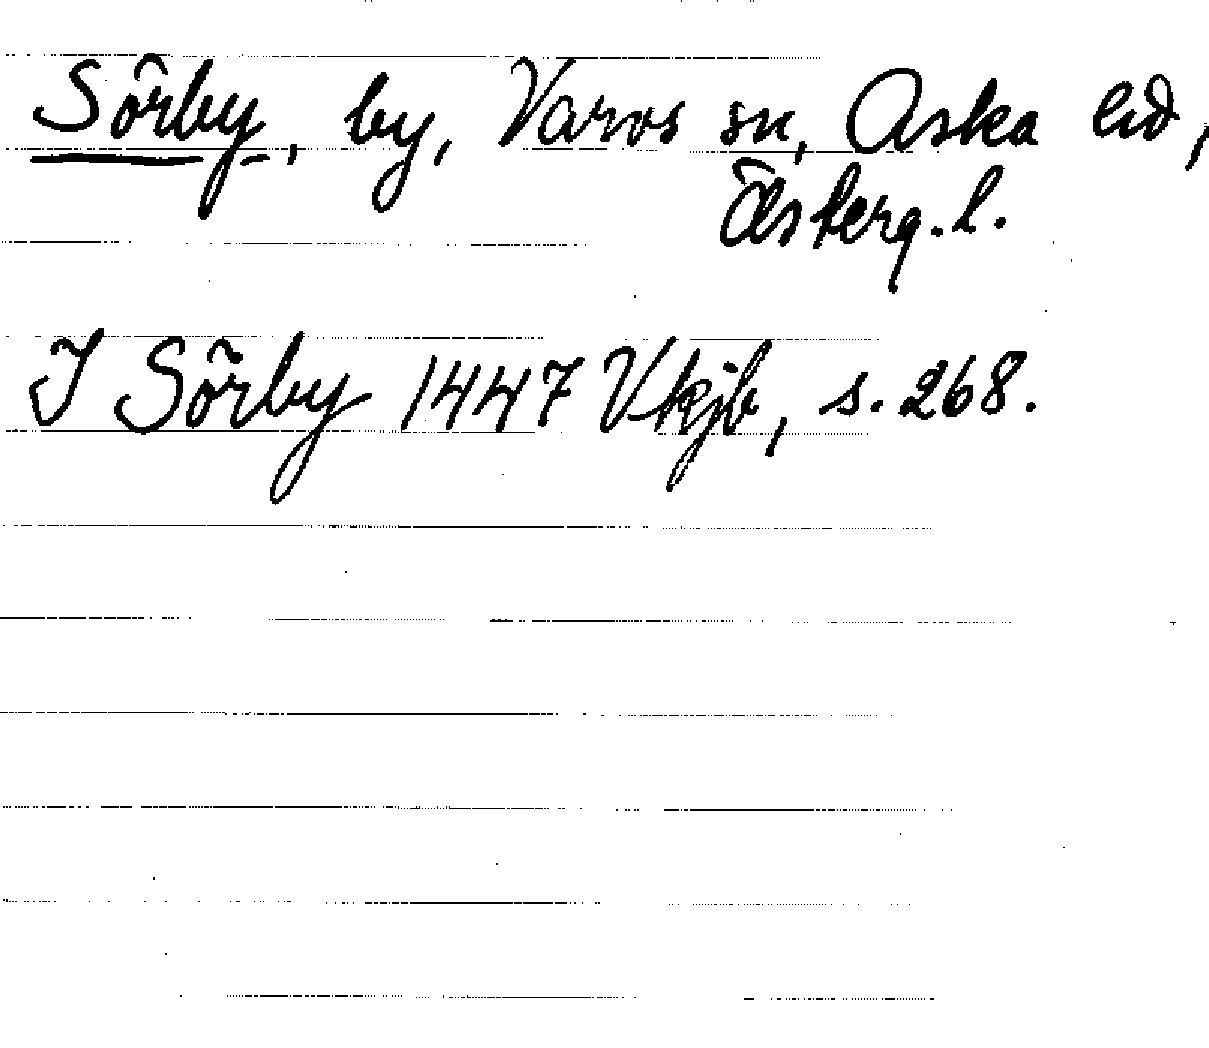 Sörby, by, Varvs sn, Aska hd,
Österg. l.
I Sörby 1447 Vkjb, s. 268.